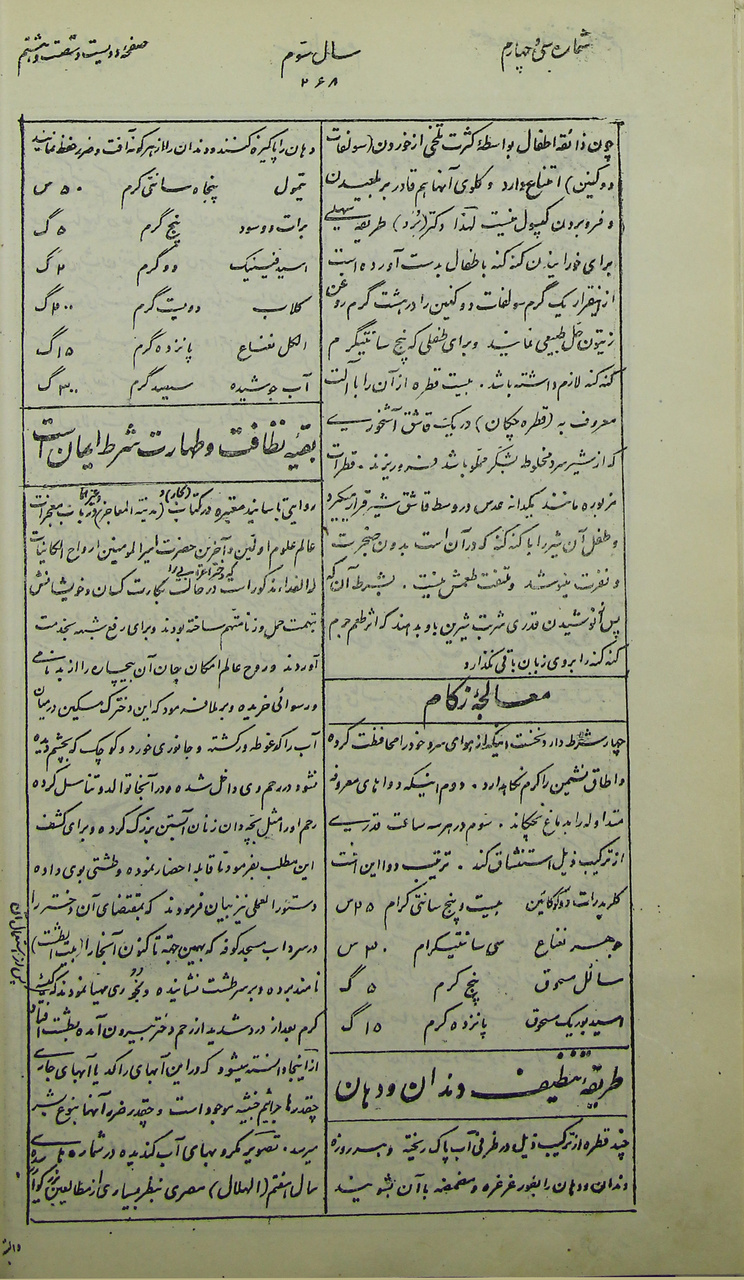 شماره سی و چهارم
سال سوم
صفحه دویست و شصت و هشتم
۲۶۸
چون ذائقه اطفال بواسطهٔ کثرت تلخی از خوردن (سولفات
دو کنین) امتناع دارد و گلوی آنها هم قادر بر بلعیدن
و فرو بردن کپسول نیست لهذا دکتر (برد) طریقه سهلی
برای خورانیدن کنه کنه باطفال بدست آورده است
از اینقرار یک گرم سولفات دو کنین را در هشت گرم روغن
زیتون حل طبیعی نمایند و برای طفلی که پنج سانتیگرم
کنه کنه لازم داشته باشد. بیست قطره از آن را با آلت
معروف به (قطره چکان) در یک قاشق آشخوری
که از شیر سرد مخلوط بشکر مملو باشد فرو ریزند. قطرات
مزبوره مانند یکدانه عدس در وسط قاشق شیر قرار میگیرد
و طفل آن شیر را با کنه کنه که در آن است بدون ضجرت
و نفرت مینوشد و ملتفت طعمش نیست. بشرط آن که
پس از نوشیدن قدری شربت شیرین باو بدهند که اثر طعم جرم
کنه کنه را بروی زبان باقی نگذارد
معالجهٔ زکام
چهار شرط دارد نخست اینکه از هوای سرد خود را محافظت کرده
و اطاق نشمین را گرم نگاهدارد. دوم اینکه دواهای معروفه
متداوله را بدماغ نچکاند. سوم در هر سه ساعت قدری
از ترکیب ذیل استنشاق کند. ترتیب دوا این است
کلریدرات دو کوکائین بیست و پنج سانتی گرام ۲۵ س
جوهر نعناع سی سانتیگرام ۳۰ س
سالل مسحوق پنج گرم ۵ گ
اسید بوریک مسحوق پانزده گرم ۱۵ گ
طریقهٔ تنظیف دندان و دهان
چند قطره از ترکیب ذیل در ظرفی آب پاک ریخته و همه روزه
دندان و دهان را بفور غرغره و مضمضه با آن بشویند
دهان را پاکیزه کنند و دندان را از هر گونه آفت و ضرر حفظ نمایند
تیمول پنجاه سانتی گرم ۵۰ س
برات دو سود پنج گرم ۵ گ
اسید فینیک دو گرم ۲ گ
گلاب دویست گرم ۲۰۰ گ
الکل نعناع پانزده گرم ۱۵ گ
آب جوشیده سیصد گرم ۳۰۰ گ
بقیهٔ نظافت و طهارت شرط ایمان است
روایتی با سانید معتبره در کتاب (بحار) و (مدینة المعاجز) و غیرها در باب معجزات
عالم علوم اولین و آخرین حضرت امیرالمومنین ارواح الکائنات
له الفداء مذکور است که دختر اعرابی را در حالت بکارت کسان و خویشانش
بتهمت حمل و زنا متهم ساخته بودند و برای رفع شبهه بخدمت
آوردند و روح عالم امکان جان آن بیچاره را از بدنامی
و رسوائی خریده و برملا نمود که این دخترک مسکین در میان
آب راکد غوطه ور گشته و جانوری خورد و کوچک که بچشم دیده
نشود در رحم وی داخل شده و در آنجا توالد و تناسل کرده
رحم او را مثل بچه دان زنان آبستن بزرگ کرده و برای کشف
این مطلب بفرمود تا قابله احضار نموده و طشتی بوی داده
دستور العملی نیز بیان فرمودند که بمقتضای آن دختر را
در سرداب مسجد کوفه که بهمین جهة تا کنون آنجا را (بیت الطشت)
نامند برده و بر سر طشت نشانیده و بخوری مهیا نمودند که یک
کرم بعد از درد شدید از رحم دختر بیرون آمده بطشت افتاد
از اینجا دانسته میشود که در این آبهای راکد یا آبهای جاری
چقدرها جراثیم خبیثه موجود است و چقدر ضرر آنها بنوع بشر
میرسد. تصویر مکروبهای آب گندیده در شماره
سال هفتم (الهلال) مصری بنظر بسیاری از مطالعین بزرگوار